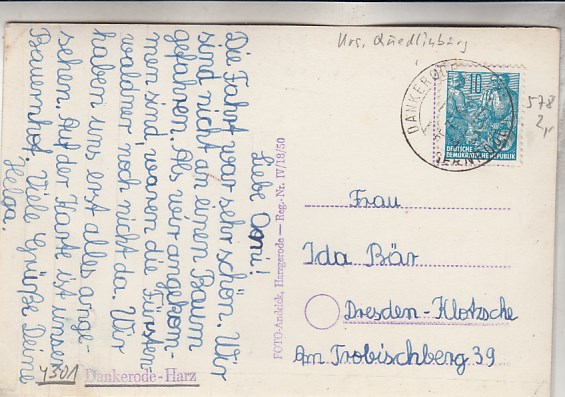 Krs. Quedlinburg
Liebe Omi!
Die Fahrt war sehr schön. Wir
sind nicht an einen Baum
gefahren. Als wir angekom-
men sind, waren die Fürsten-
waldner noch nicht da. Wir
haben uns erst alles ange-
sehen. Auf der Karte ist unser
Bauernhof. Viele Grüße Deine
Helga.
4301 Dankerode-Harz
FOTO-Anklick, Harzgerode — Reg.-Nr. IV/18/50
DANKERODE
10
DEUTSCHE
DEMOKRATISCHE REPUBLIK
578
2,-
Frau
Ida Bär
Dresden-Klotzsche
Am Trobischberg 39